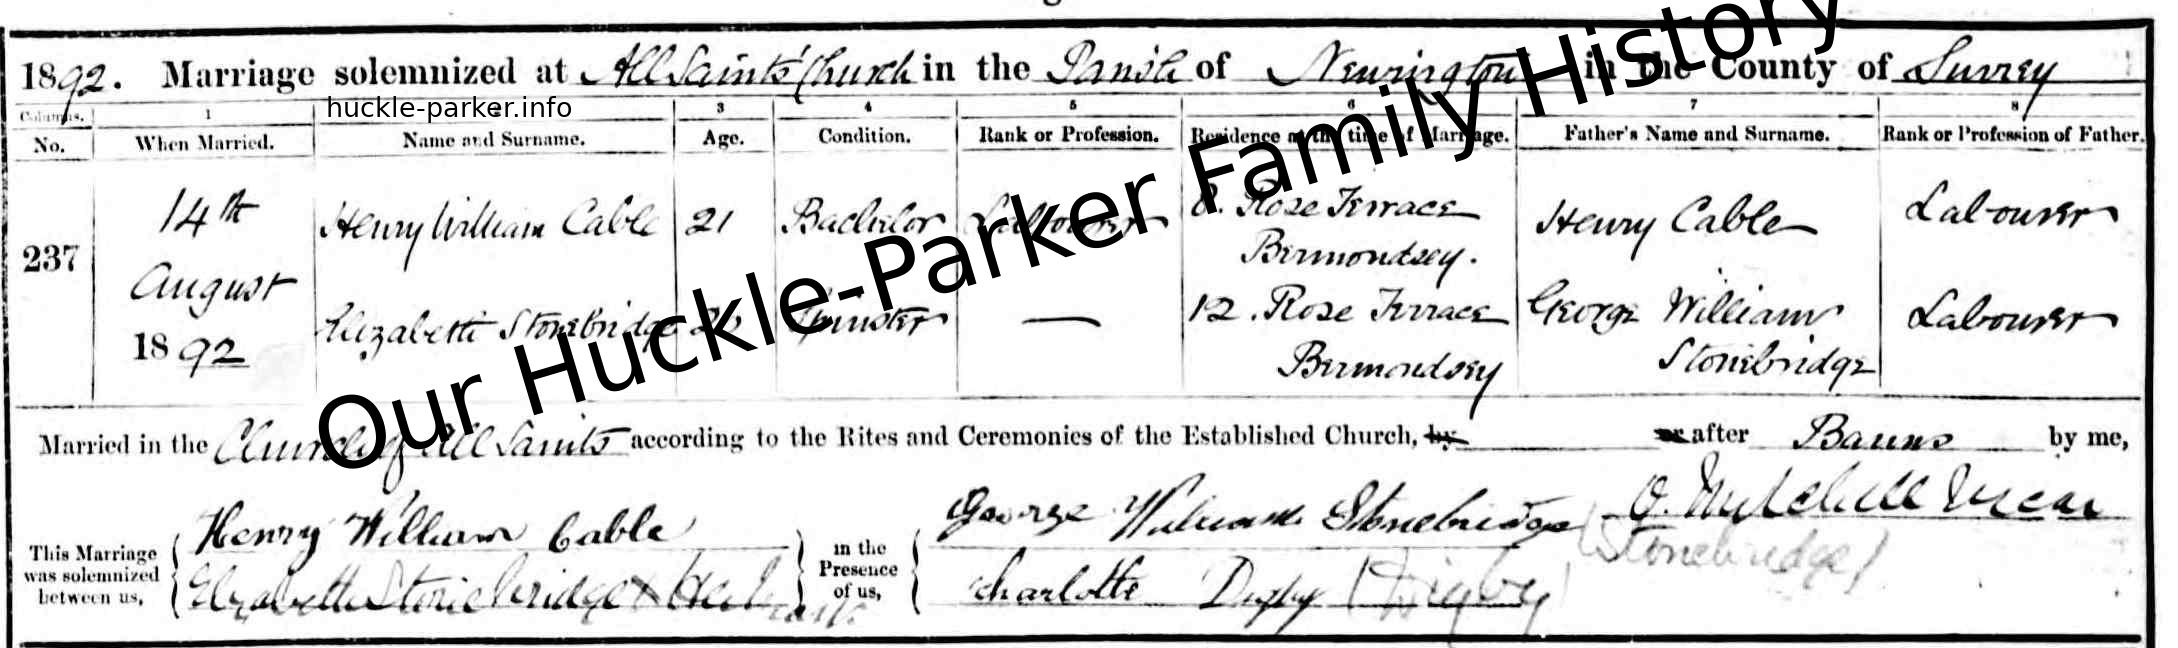 1892. Marriage solemnized at All Saints' Church in the Parish of Newington in the County of Surrey
huckle-parker.info
Columns. 1 3 4 5 6 7 8
No. When Married. Name and Surname. Age. Condition. Rank or Profession. Residence at the time of Marriage. Father's Name and Surname. Rank or Profession of Father.
237 14th August 1892
Henry William Cable 21 Bachelor Labourer 8. Rose Terrace Bermondsey. Henry Cable Labourer
Elizabeth Stonebridge Spinster — 12. Rose Terrace Bermondsey George William Stonebridge Labourer
Our Huckle-Parker Family History
Married in the Church of All Saints according to the Rites and Ceremonies of the Established Church, by or after Banns by me,
Henry William Cable George William Stonebridge Mitchell Vicar
This Marriage was solemnized between us, in the Presence of us, (Stonebridge)
Elizabeth Stonebridge X Her mark. Charlotte Digby (Digby)